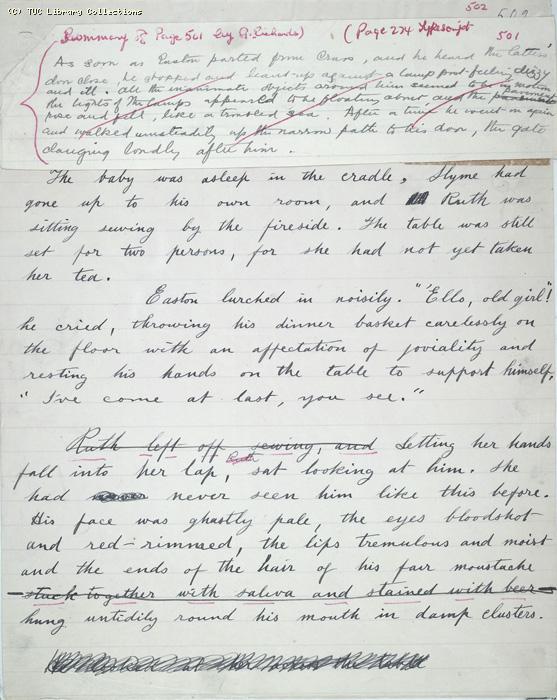 (C) TUC Library Collections
502
502
Summary of Page 501 by G. Richards) (Page 274 Typescript 501
As soon as Easton parted from Crass, and he heard the latters'
door close, he stopped and leant up against a lamp post feeling dizzy
and ill. All the inanimate objects around him seemed to be in motion
the lights of the lamps appeared to be floating about, and the pavement
rose and fell, like a troubled sea. After a time he went on again
and walked unsteadily up the narrow path to his door, the gate
clanging loudly after him.
The baby was asleep in the cradle, Slyme had
gone up to his own room, and Ruth was
sitting sewing by the fireside. The table was still
set for two persons, for she had not yet taken
her tea.
Easton lurched in noisily. "'Ello, old girl!
he cried, throwing his dinner basket carelessly on
the floor with an affectation of joviality and
resting his hands on the table to support himself.
"I've come at last, you see."
Ruth left off sewing, and Letting her hands
fall into her lap, Ruth sat looking at him. She
had never seen him like this before.
His face was ghastly pale, the eyes bloodshot
and red-rimmed, the lips tremulous and moist
and the ends of the hair of his fair moustache
stuck together with saliva and stained with beer
hung untidily round his mouth in damp clusters.